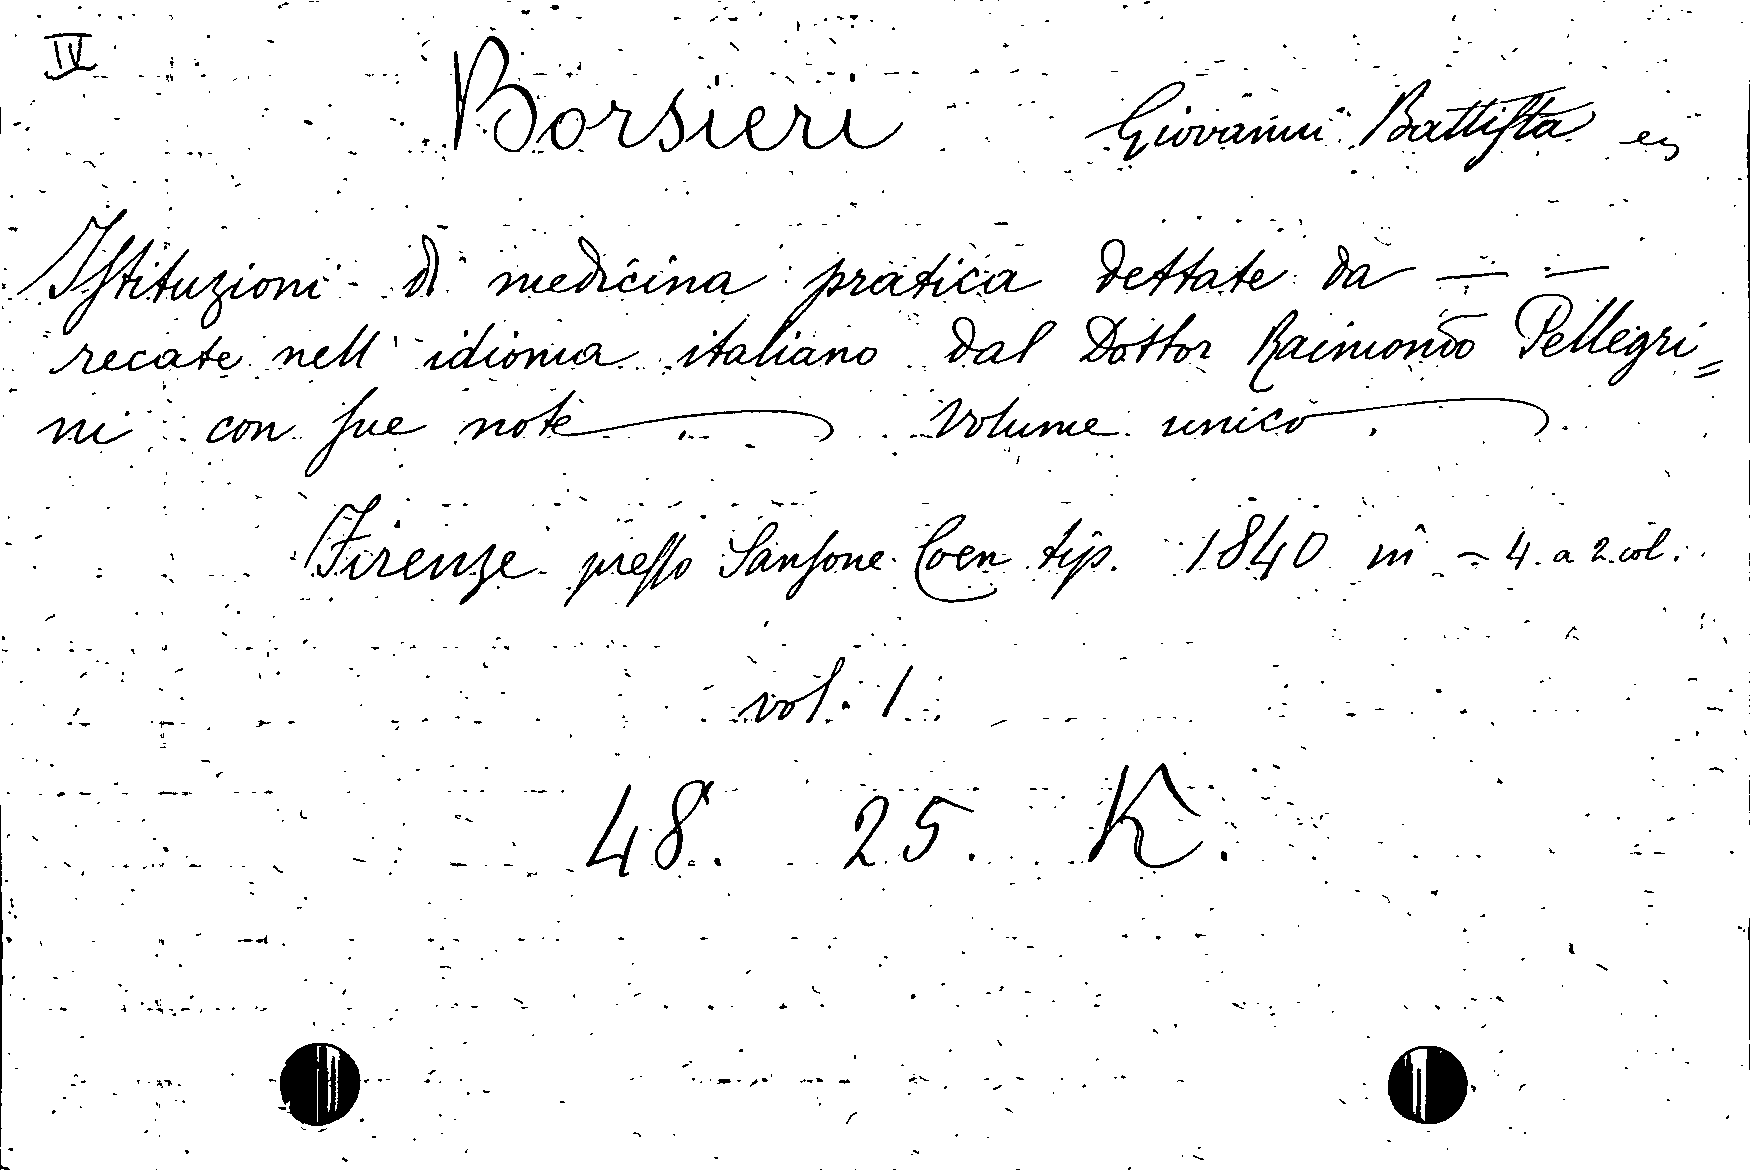 IV
Borsieri Giovanni Battista
Istituzioni di medicina pratica dettate da — —
recate nell' idioma italiano dal Dottor Raimondo Pellegri=
ni con sue note Volume unico
Firenze presso Sansone Coen tip. 1840 in - 4. a 2. col.
vol. 1
48. 25. K.